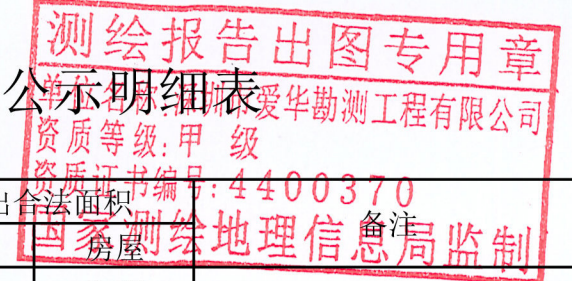 测绘报告出图专用章
公示明细表
单位名称:深圳市爱华勘测工程有限公司
资质等级:甲 级
资质证书编号:4400370
出合法面积
备注
房屋
国家测绘地理信息局监制